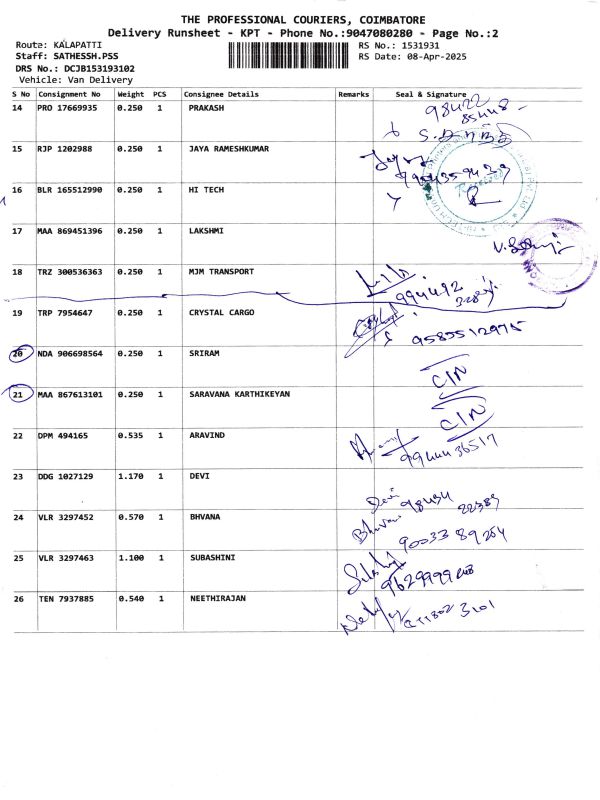 THE PROFESSIONAL COURIERS, COIMBATORE
Delivery Runsheet - KPT - Phone No.:9047080280 - Page No.:2
Route: KALAPATTI
RS No.: 1531931
Staff: SATHESSH.PSS
RS Date: 08-Apr-2025
DRS No.: DCJB153193102
Vehicle: Van Delivery
S No Consignment No Weight PCS Consignee Details Remarks Seal & Signature
14 PRO 17669935 0.250 1 PRAKASH 98422
85448
15 RJP 1202988 0.250 1 JAYA RAMESHKUMAR
16 BLR 165512990 0.250 1 HI TECH
17 MAA 869451396 0.250 1 LAKSHMI
18 TRZ 300536363 0.250 1 MJM TRANSPORT
994492
19 TRP 7954647 0.250 1 CRYSTAL CARGO
9585512975
20 NDA 906698564 0.250 1 SRIRAM CIN
21 MAA 867613101 0.250 1 SARAVANA KARTHIKEYAN CIN
22 DPM 494165 0.535 1 ARAVIND 9944436517
23 DDG 1027129 1.170 1 DEVI
Devi 98434
22389
24 VLR 3297452 0.570 1 BHVANA
9003389254
25 VLR 3297463 1.100 1 SUBASHINI
26 TEN 7937885 0.540 1 NEETHIRAJAN